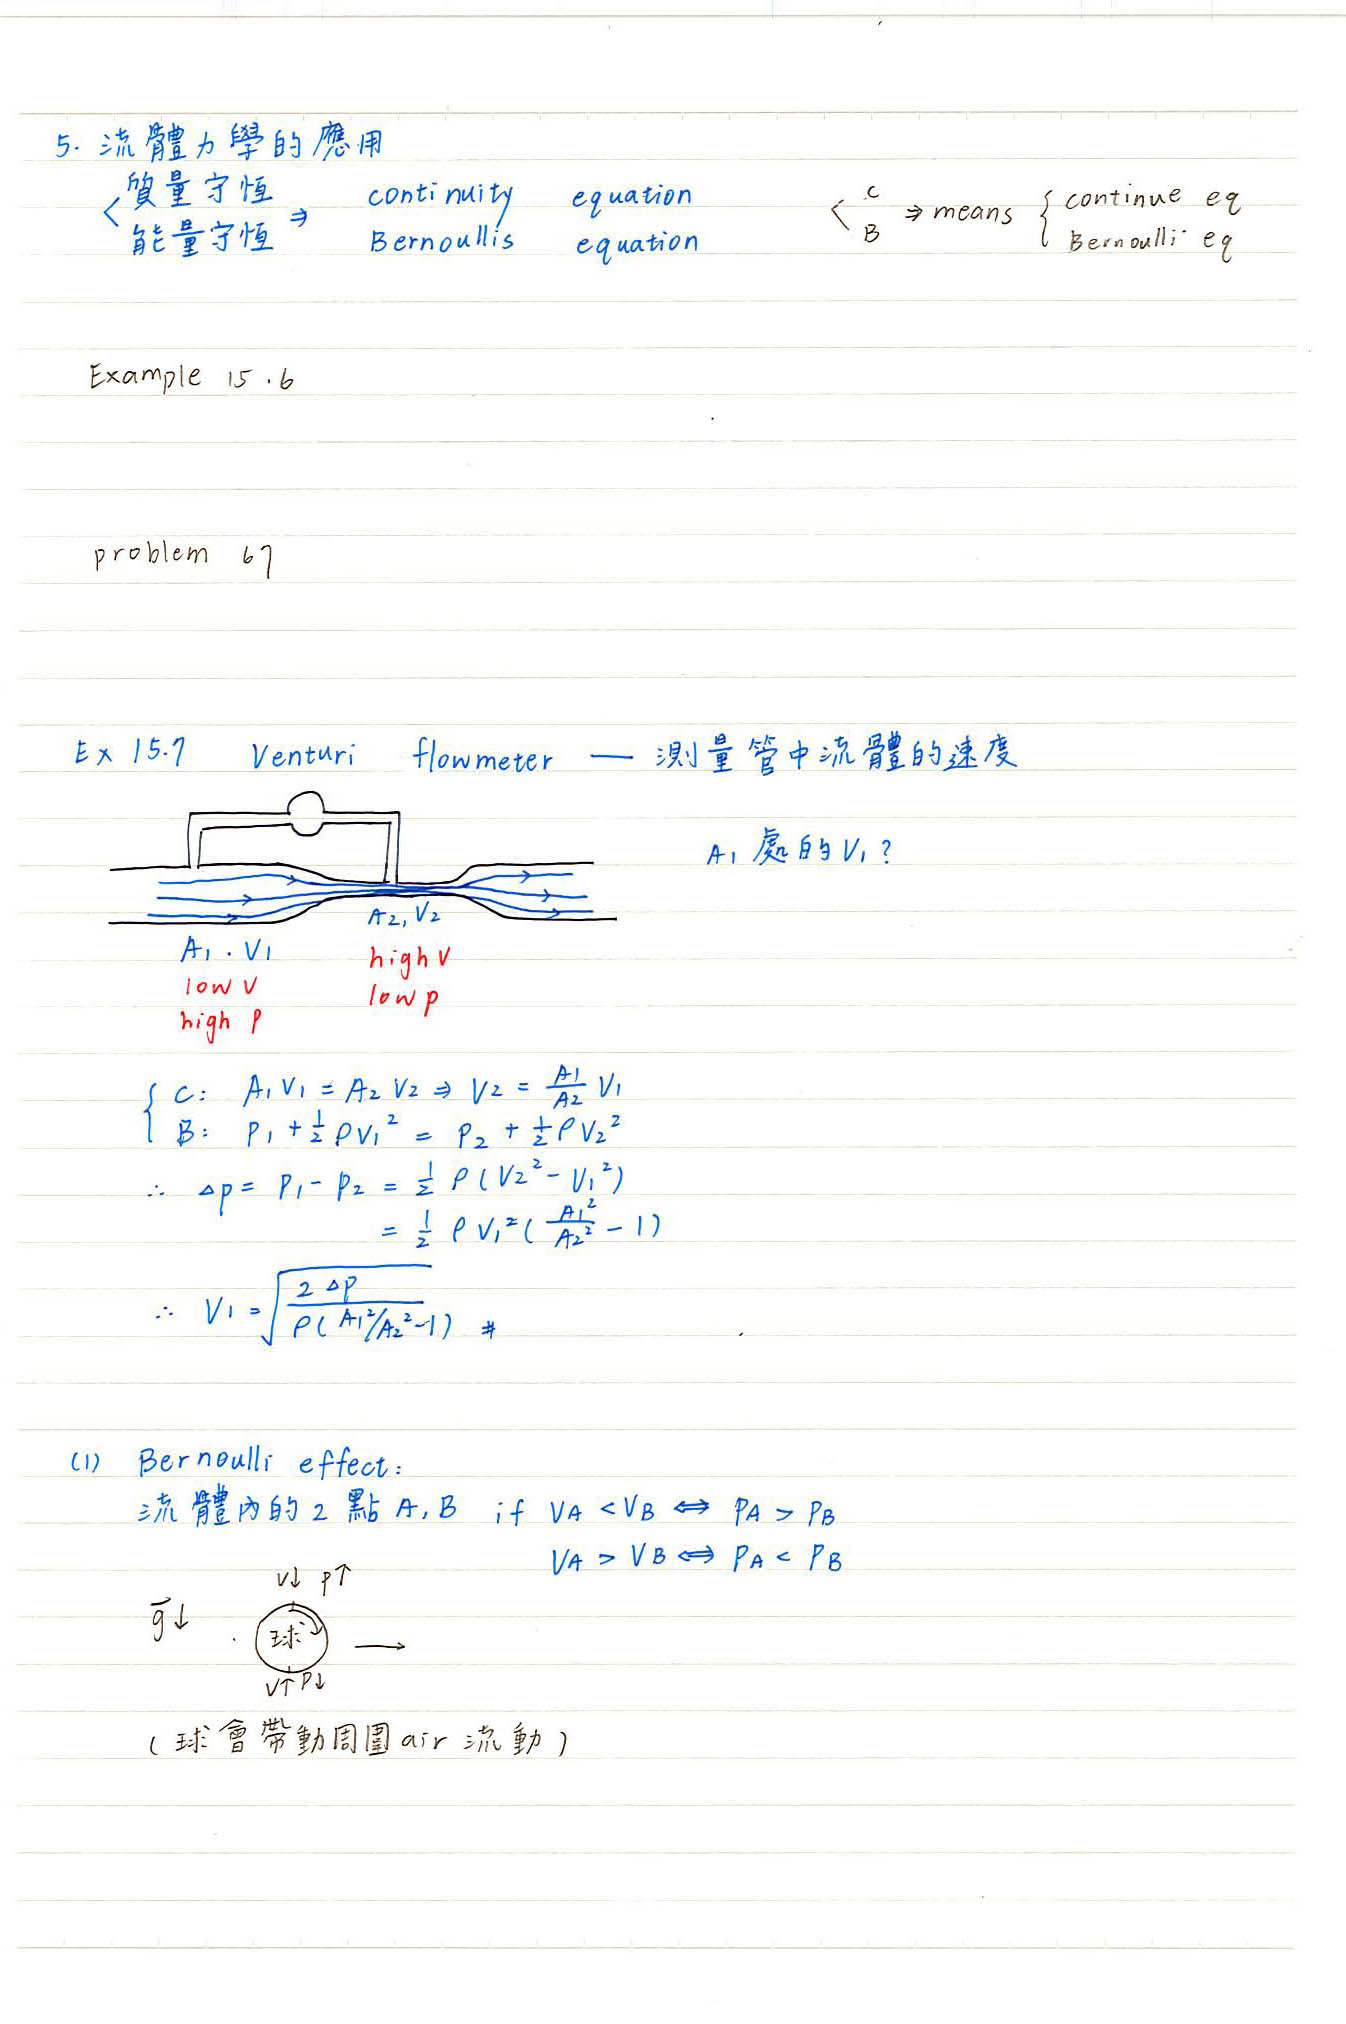 5. 流體力學的應用
質量守恆 ⇒ continuity equation
能量守恆 Bernoullis equation
< C B ⇒ means { continue eq
Bernoulli eq
Example 15.6
problem 67
Ex 15.7 Venturi flowmeter — 測量管中流體的速度
A₁ 處的 V₁ ?
A₂, V₂
A₁ . V₁
high V
low p
low V
high P
C: A₁V₁ = A₂V₂ ⇒ V₂ = A₁/A₂ V₁
B: P₁ + 1/2 ρV₁² = P₂ + 1/2 ρV₂²
∴ △p = P₁ - P₂ = 1/2 ρ(V₂² - V₁²)
= 1/2 ρV₁²(A₁²/A₂² - 1)
∴ V₁ = √(2△P / ρ(A₁²/A₂² - 1)) #
(1) Bernoulli effect:
流體內的2點A,B if VA < VB ⇔ PA > PB
VA > VB ⇔ PA < PB
V↓ P↑
g↓
球 →
V↑ P↓
(球會帶動周圍air流動)